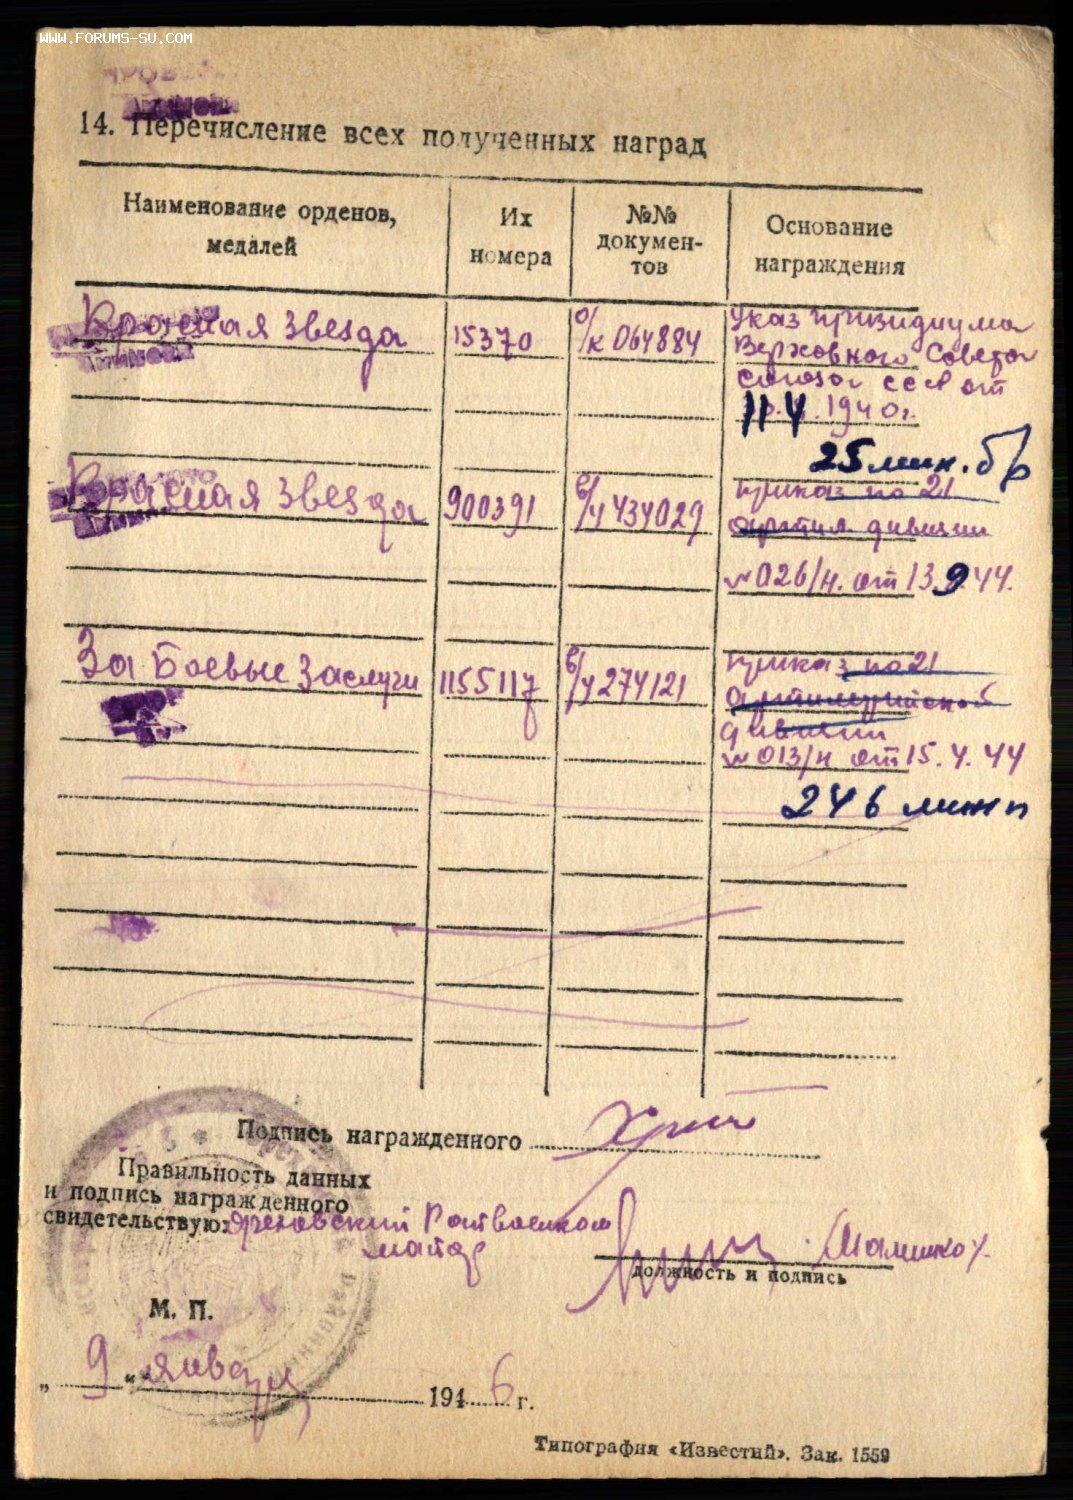 WWW.FORUMS-SU.COM
14. Перечисление всех полученных наград
Наименование орденов, медалей
Их номера
№№ документов
Основание награждения
Красная Звезда 15370 о/к 064884 Указ призидиума
Верховного Совета
Союза ССР от
11 4 1940г.
25 мин. бр
Красная Звезда 900391 434029 приказ по 21
артил. дивизии
№ 026/н. от 13 9 44.
За Боевые Заслуги 1155117 274121 приказ по 21
артиллерийской
дивизии
№ 013/н от 15.4.44
246 минп
Подпись награжденного
Правильность данных
и подпись награжденного
свидетельствую: Ореховский Райвоенком
майор Малишко
должность и подпись
М. П.
„ 9 “ января 1946 г.
Типография «Известий». Зак. 1559